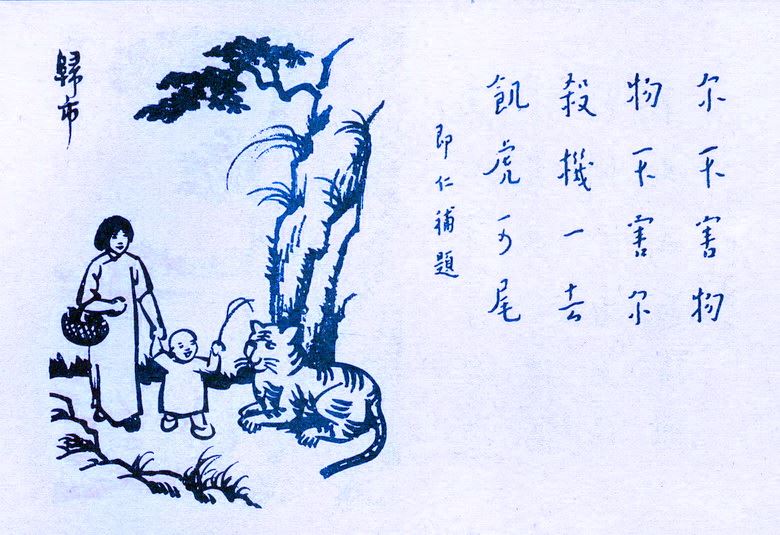 尔不害物
物不害尔
殺機一去
飢虎可尾
即仁補題
歸市